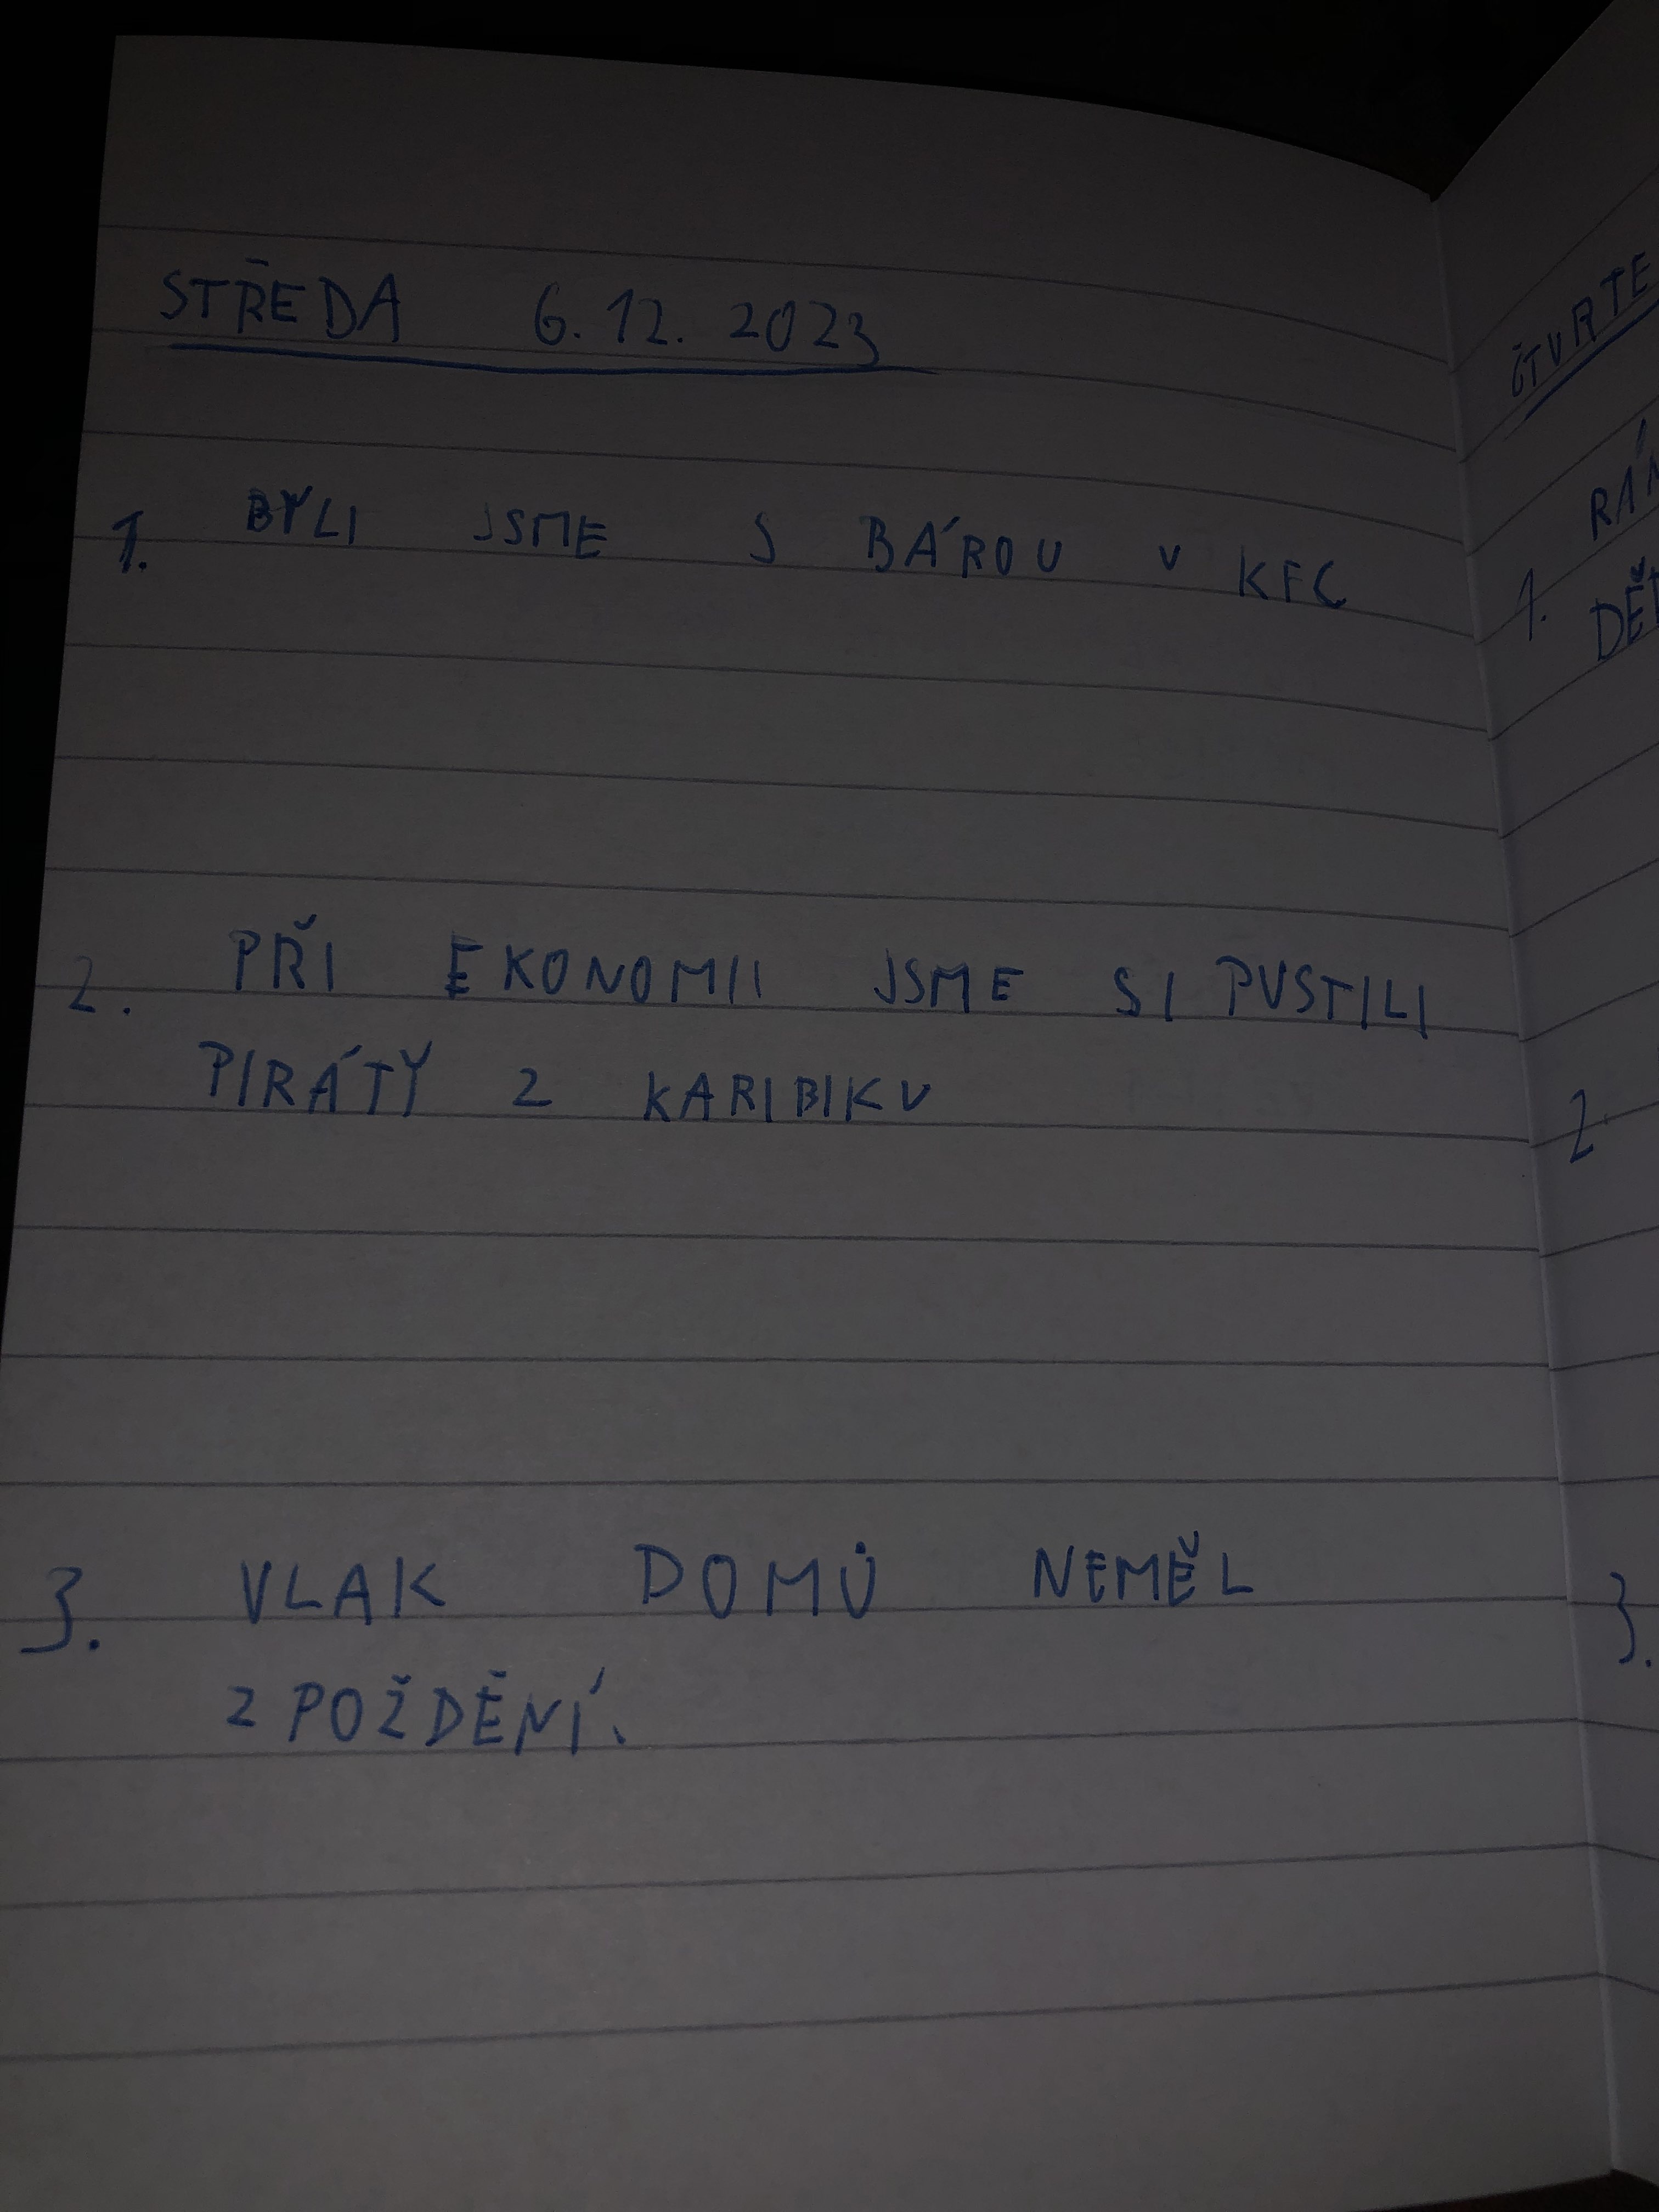 STŘEDA 6. 12. 2023
1. BYLI JSME S BÁROU V KFC
2. PŘI EKONOMII JSME SI PUSTILI
PIRÁTY Z KARIBIKU
3. VLAK DOMŮ NEMĚL
ZPOŽDĚNÍ.
1.
2.
3.